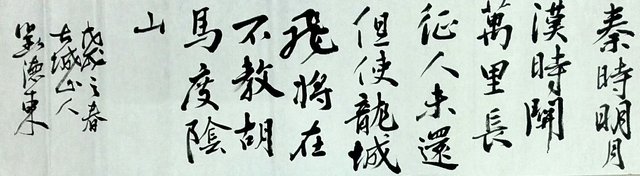 秦時明月
漢時關
萬里長
征人未還
但使龍城
飛將在
不教胡
馬度陰
山
戊戌之春
古城山人
東